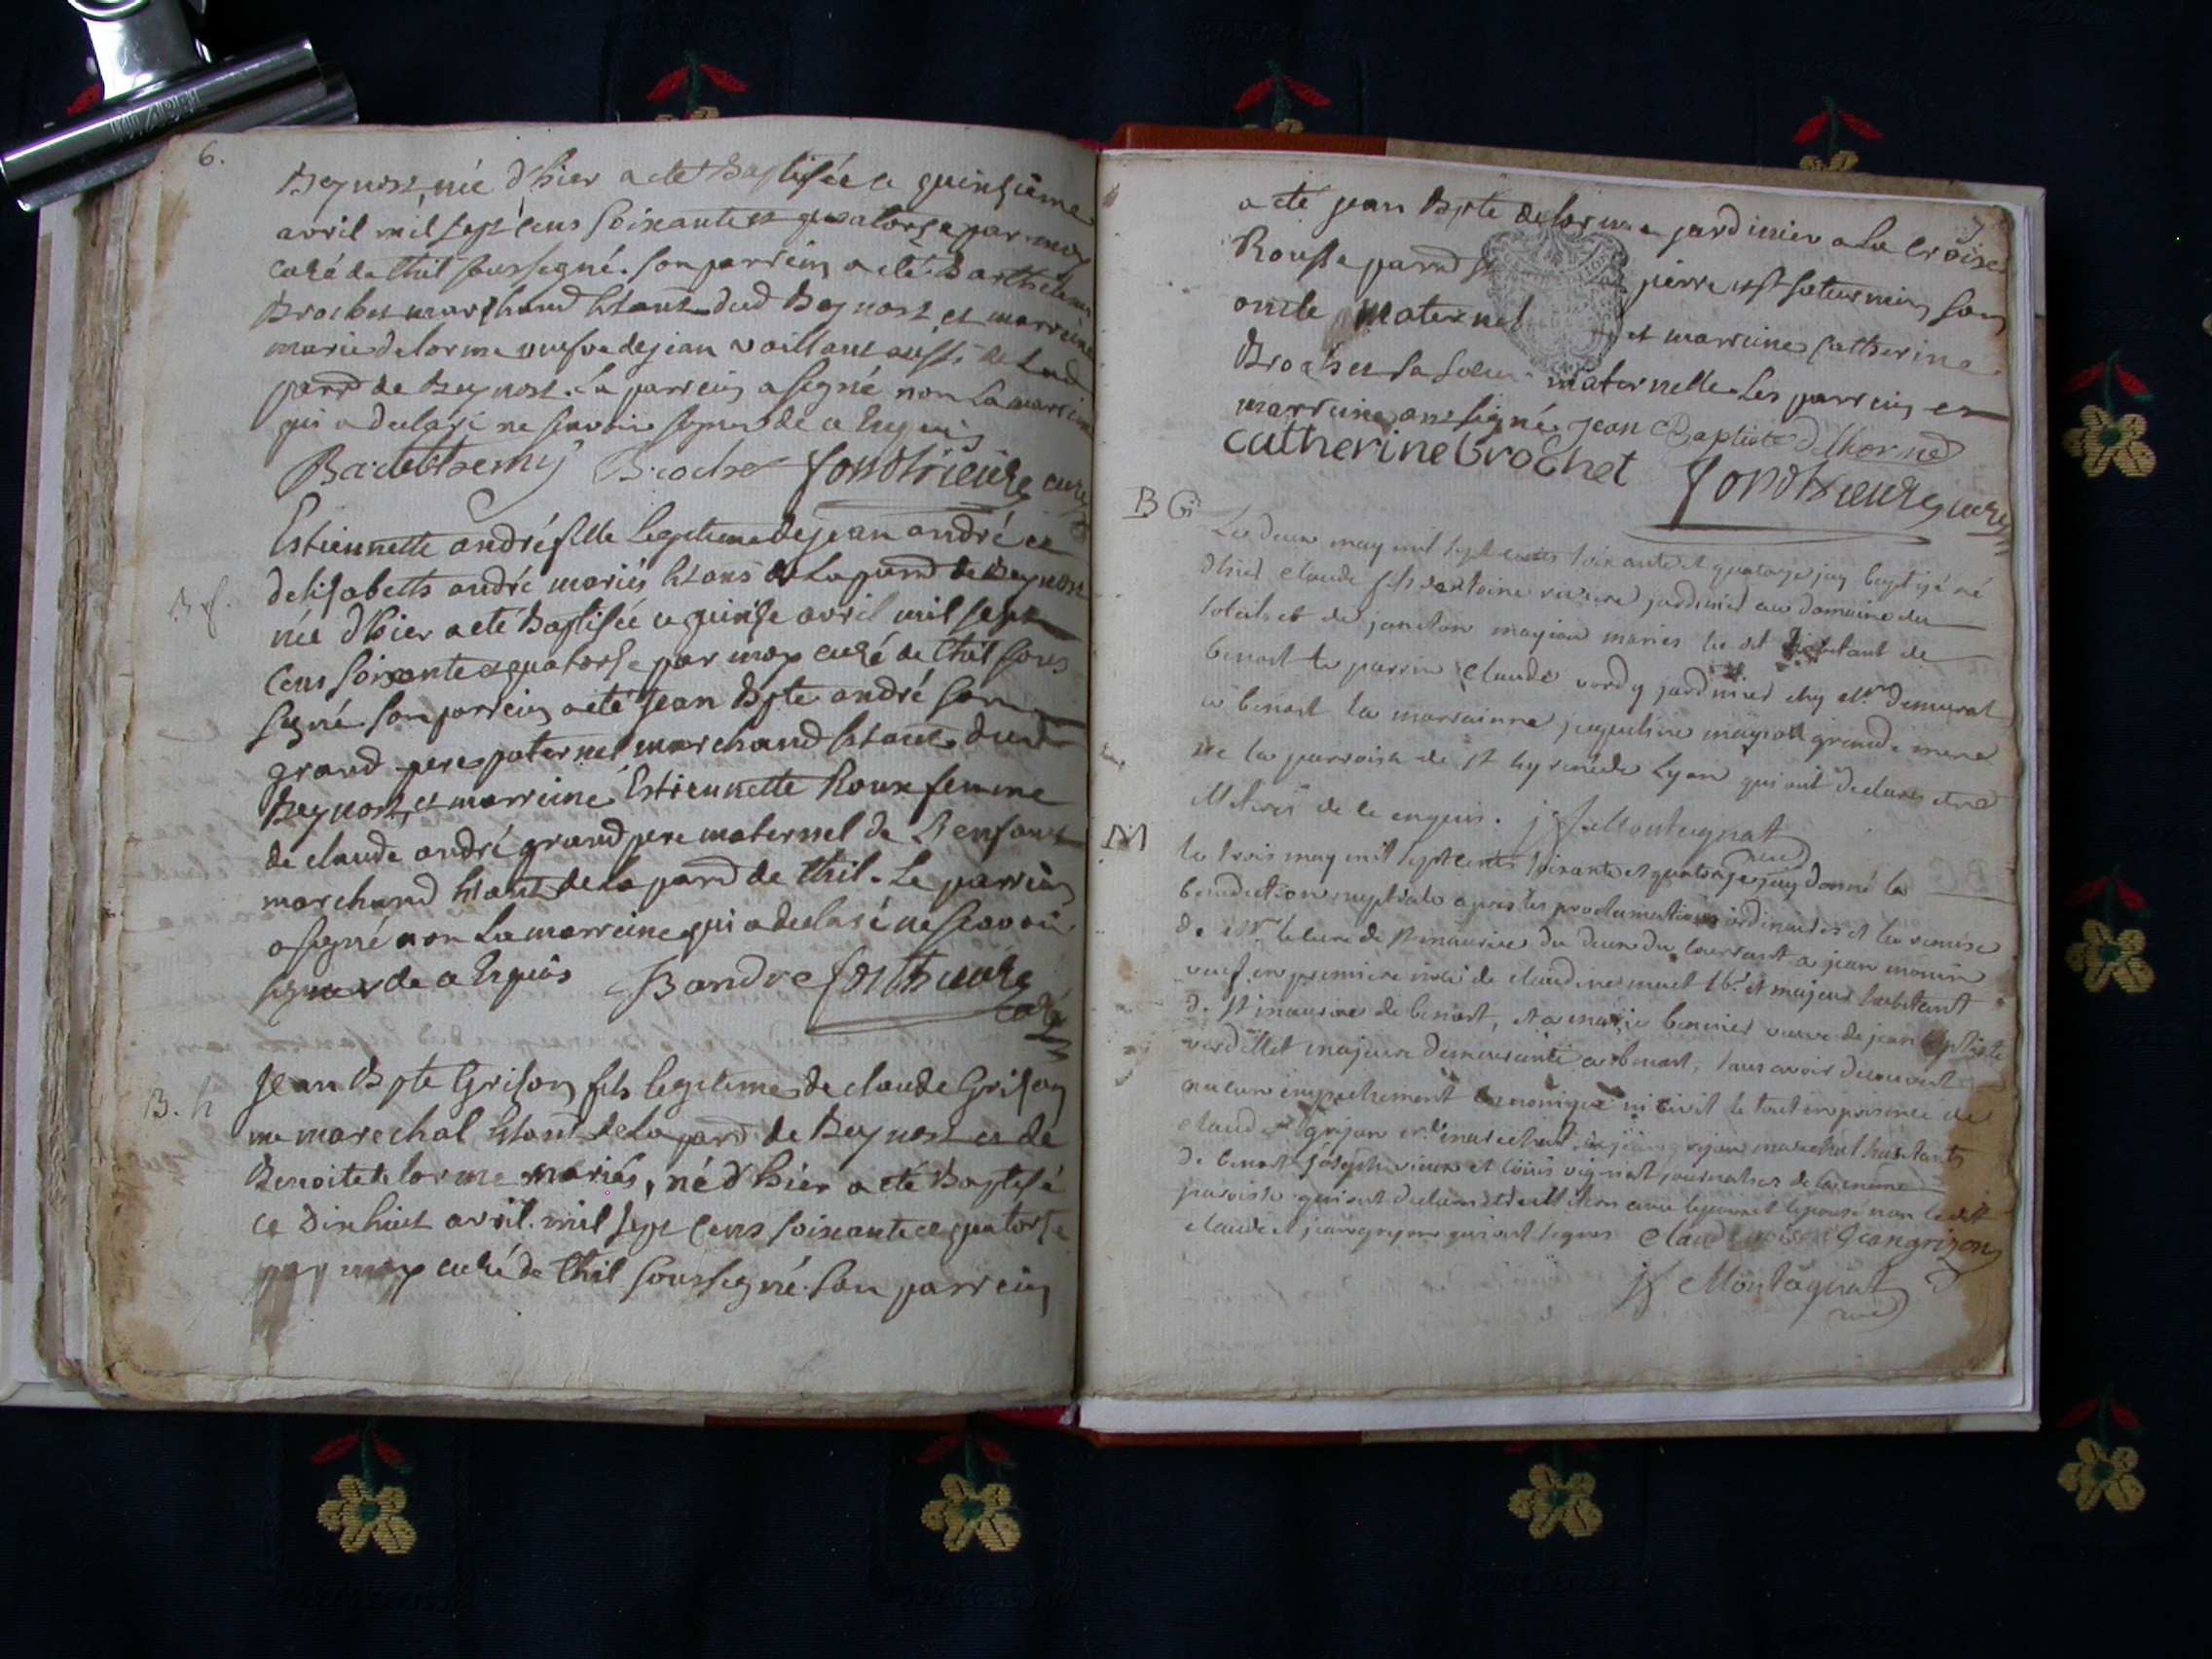 6.
Beynost, née d'hier a eté Baptisée ce quinziéme
avril mil sept cens soixante et quatorze par moy
curé de Thil soussigné. son parrein a eté Barthelemy
Brochet marchand htant dud Beynost, et marreine
marie delorme veufve de jean vaillant aussi de Lad
parr de Beynost. Le parrein a signé non La marreine
qui a declaré ne scavoir signer de ce Enquis
Barthelemy Brochet fondhrieure curé
B f.
Estiennette andré fille legitime de jean andré et
delisabeth andré mariés htans de La parr de Beynost
née d'hier a eté Baptisée ce quinze avril mil sept
cens soixante et quatorze par moy curé de Thil sous
signé son parrein a eté jean Bpte andré son
grand pere paternel marchand htant dud
Beynost, et marreine Estiennette Roux femme
de claude andré grand pere maternel de L'enfant
marchand htant de La parr de Thil. Le parrein
a signé non La marreine qui a declaré ne scavoir
signer de ce Enquis JB andre fondhrieure
curé
B. h
Jean Bpte Grison fils legitime de claude Grison
me marechal htant de La parr de Beynost et de
Benoite delorme mariés, né d'hier a eté Baptisé
ce dix huit avril mil sept cens soixante et quatorze
par moy curé de Thil soussigné. son parrein
7
a eté jean Bpte delorme jardinier a La Croix
Rousse parr St pierre est saturnin son
oncle maternel et marreine catherine
Brochet sa maternelle Les parrein et
marreine ont signé jean Baptiste delhorme
catherine brochet fondhrieure curé
B G
Le deux may mil sept cents soixante et quatorze jay baptisé né
dhier claude fils dantoine riviere jardinier au domaine du
soleil et de janeton mayian mariés le dit habitant de
benost le parrin claude verdy jardinier chez Mr. demurat
a benost la marrainne jaqueline mayian grande mere
de la parroise de st hyrenée de Lyon qui ont declarés etre
illiteres de ce enquis. jf Montagnat
curé
M
le trois may mil sept cents soixante et quatorze jay donné la
benediction nuptiale apres les proclamations ordinaires et la remise
de Mr le curé de st maurice du deux du courrant a jean monin
veuf en premiere nôce de claudine muet et majeur habitant
de st maurice de benost, et a marie bennier veuve de jean baptiste
verdellet majeure demeurante a benost, sans avoir decouvert
aucun empechement canonique ni civil le tout en presence de
claude grijon me marechal, jean grijon marechal habitants
de benost joseph vieux et loüis vignat journaliers de la meme
paroisse qui ont declaré etre illiteres avec lepoux et lepouse non le dit
claude et jean grijon qui ont signes claude grison jean grizon
jf Montagnat
curé